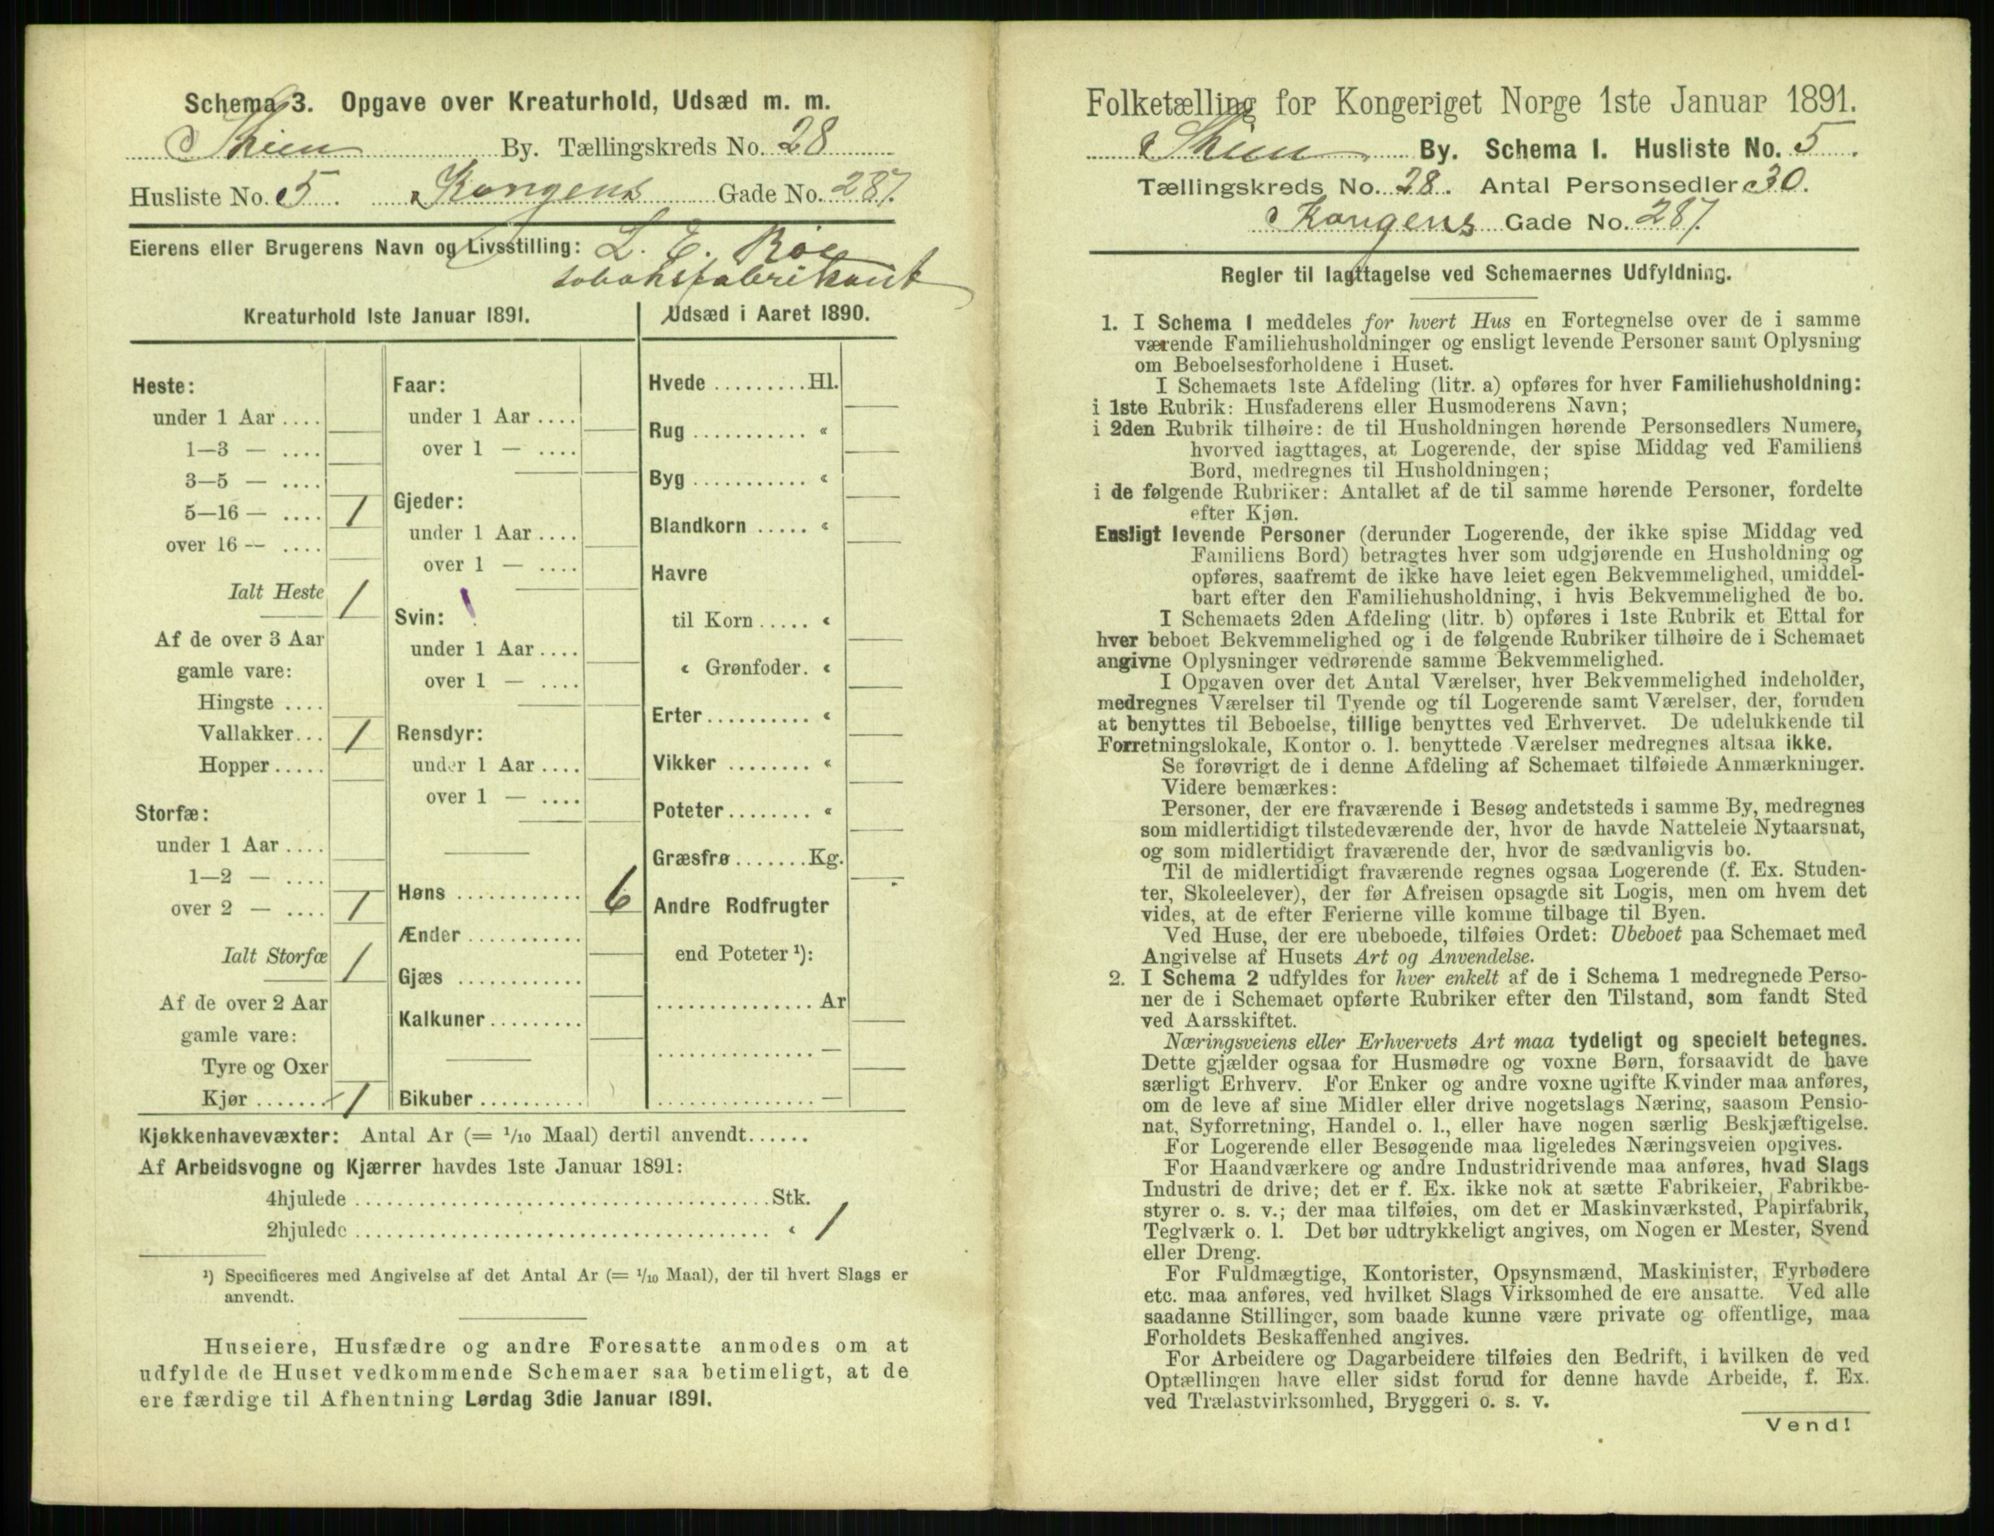 Schema 3. Opgave over Kreaturhold, Udsæd m. m.
Skien By. Tællingskreds No. 28
Husliste No. 5. Kongens Gade No. 287.
Eierens eller Brugerens Navn og Livsstilling: L. E. Röe
tobaksfabrikant
Kreaturhold 1ste Januar 1891.
Heste:
under 1 Aar ....
1—3 — ....
3—5 — ....
5—16 — .... 1
over 16 — ....
Ialt Heste 1
Af de over 3 Aar
gamle vare:
Hingste ....
Vallakker... 1
Hopper .....
Storfæ:
under 1 Aar ....
1—2 — ....
over 2 — .... 1
Ialt Storfæ 1
Af de over 2 Aar
gamle vare:
Tyre og Oxer
Kjør ....... 1
Faar:
under 1 Aar ....
over 1 — ....
Gjeder:
under 1 Aar ....
over 1 — ....
Svin:
under 1 Aar ....
over 1 — ....
Rensdyr:
under 1 Aar ....
over 1 — ....
Høns ............ 6
Ænder ...........
Gjæs ............
Kalkuner .........
Bikuber ..........
Udsæd i Aaret 1890.
Hvede ......... Hl.
Rug ........... «
Byg ........... «
Blandkorn ..... «
Havre
til Korn ..... «
« Grønfoder. «
Erter .......... «
Vikker ........ «
Poteter ........ «
Græsfrø ....... Kg.
Andre Rodfrugter
end Poteter ¹):
............... Ar
............... —
............... —
Kjøkkenhavevæxter: Antal Ar (= 1/10 Maal) dertil anvendt......
Af Arbeidsvogne og Kjærrer havdes 1ste Januar 1891:
4hjulede ........................................ Stk.
2hjulede ........................................ « 1
¹) Specificeres med Angivelse af det Antal Ar (= 1/10 Maal), der til hvert Slags er
anvendt.
Huseiere, Husfædre og andre Foresatte anmodes om at
udfylde de Huset vedkommende Schemaer saa betimeligt, at de
ere færdige til Afhentning Lørdag 3die Januar 1891.
Folketælling for Kongeriget Norge 1ste Januar 1891.
Skien By. Schema I. Husliste No. 5.
Tællingskreds No. 28. Antal Personsedler 30.
Kongens Gade No. 287.
Regler til Iagttagelse ved Schemaernes Udfyldning.
1. I Schema 1 meddeles for hvert Hus en Fortegnelse over de i samme
værende Familiehusholdninger og ensligt levende Personer samt Oplysning
om Beboelsesforholdene i Huset.
I Schemaets 1ste Afdeling (litr. a) opføres for hver Familiehusholdning:
i 1ste Rubrik: Husfaderens eller Husmoderens Navn;
i 2den Rubrik tilhøire: de til Husholdningen hørende Personsedlers Numere,
hvorved iagttages, at Logerende, der spise Middag ved Familiens
Bord, medregnes til Husholdningen;
i de følgende Rubriker: Antallet af de til samme hørende Personer, fordelte
efter Kjøn.
Ensligt levende Personer (derunder Logerende, der ikke spise Middag ved
Familiens Bord) betragtes hver som udgjørende en Husholdning og
opføres, saafremt de ikke have leiet egen Bekvemmelighed, umiddel-
bart efter den Familiehusholdning, i hvis Bekvemmelighed de bo.
I Schemaets 2den Afdeling (litr. b) opføres i 1ste Rubrik et Ettal for
hver beboet Bekvemmelighed og i de følgende Rubriker tilhøire de i Schemaet
angivne Oplysninger vedrørende samme Bekvemmelighed.
I Opgaven over det Antal Værelser, hver Bekvemmelighed indeholder,
medregnes Værelser til Tyende og til Logerende samt Værelser, der, foruden
at benyttes til Beboelse, tillige benyttes ved Erhvervet. De udelukkende til
Forretningslokale, Kontor o. l. benyttede Værelser medregnes altsaa ikke.
Se forøvrigt de i denne Afdeling af Schemaet tilføiede Anmærkninger.
Videre bemærkes:
Personer, der ere fraværende i Besøg andetsteds i samme By, medregnes
som midlertidigt tilstedeværende der, hvor de havde Natteleie Nytaarsnat,
og som midlertidigt fraværende der, hvor de sædvanligvis bo.
Til de midlertidigt fraværende regnes ogsaa Logerende (f. Ex. Studen-
ter, Skoleelever), der før Afreisen opsagde sit Logis, men om hvem det
vides, at de efter Ferierne ville komme tilbage til Byen.
Ved Huse, der ere ubeboede, tilføies Ordet: Ubeboet paa Schemaet med
Angivelse af Husets Art og Anvendelse.
2. I Schema 2 udfyldes for hver enkelt af de i Schema 1 medregnede Perso-
ner de i Schemaet opførte Rubriker efter den Tilstand, som fandt Sted
ved Aarsskiftet.
Næringsveiens eller Erhvervets Art maa tydeligt og specielt betegnes.
Dette gjælder ogsaa for Husmødre og voxne Børn, forsaavidt de have
særligt Erhverv. For Enker og andre voxne ugifte Kvinder maa anføres,
om de leve af sine Midler eller drive nogetslags Næring, saasom Pensio-
nat, Syforretning, Handel o. l., eller have nogen særlig Beskjæftigelse.
For Logerende eller Besøgende maa ligeledes Næringsveien opgives.
For Haandværkere og andre Industridrivende maa anføres, hvad Slags
Industri de drive; det er f. Ex. ikke nok at sætte Fabrikeier, Fabrikbe-
styrer o. s. v.; der maa tilføies, om det er Maskinværksted, Papirfabrik,
Teglværk o. l. Det bør udtrykkeligt angives, om Nogen er Mester, Svend
eller Dreng.
For Fuldmægtige, Kontorister, Opsynsmænd, Maskinister, Fyrbødere
etc. maa anføres, ved hvilket Slags Virksomhed de ere ansatte. Ved alle
saadanne Stillinger, som baade kunne være private og offentlige, maa
Forholdets Beskaffenhed angives.
For Arbeidere og Dagarbeidere tilføies den Bedrift, i hvilken de ved
Optællingen have eller sidst forud for denne havde Arbeide, f. Ex.
ved Trælastvirksomhed, Bryggeri o. s. v.
Vend!